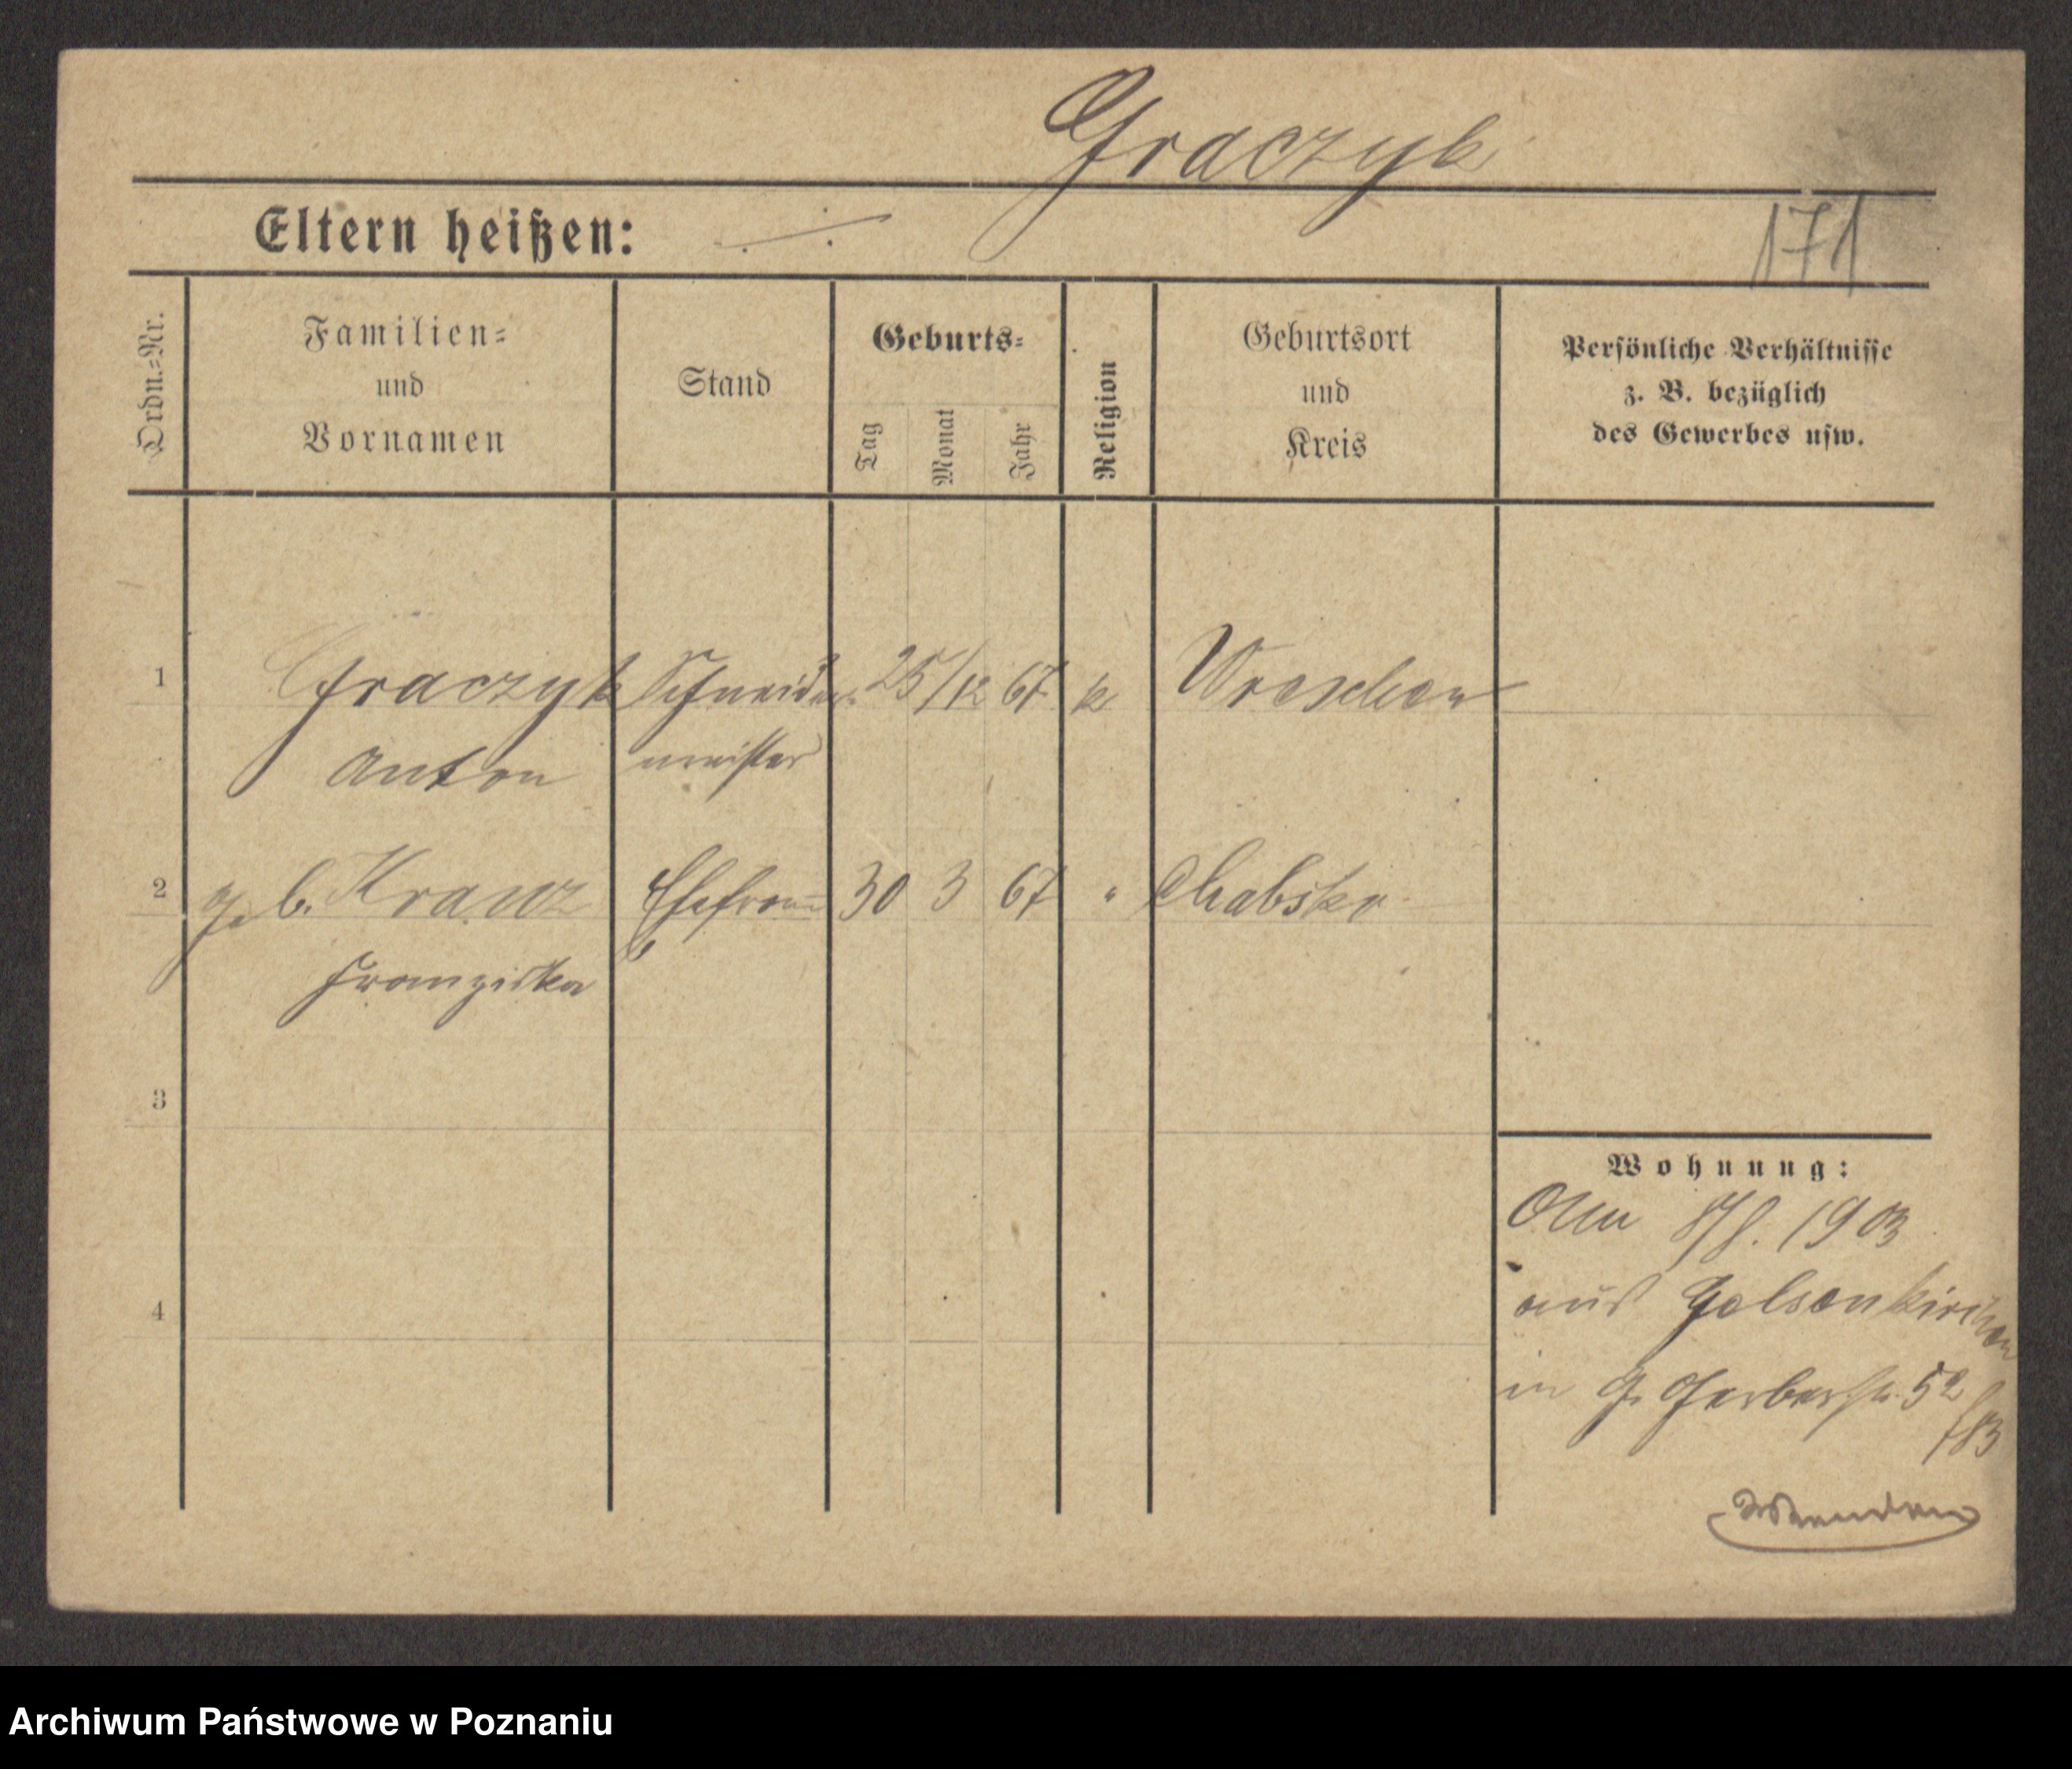 Graczyk
171
Eltern heißen: ./.
Ordn.=Nr.
Familien=
und
Vornamen
Stand
Geburts=
Tag
Monat
Jahr
Religion
Geburtsort
und
Kreis
Persönliche Verhältnisse
z. B. bezüglich
des Gewerbes usw.
1 Graczyk Schneider 25/12 67 k Wreschen
Anton meister
2 geb. Kranz Ehefrau 30 3 67 " Chabsko
Franziska
3
4
Wohnung:
1903
aus Gelsenkirchen
in Gr. Gerberstr. 52
Archiwum Państwowe w Poznaniu